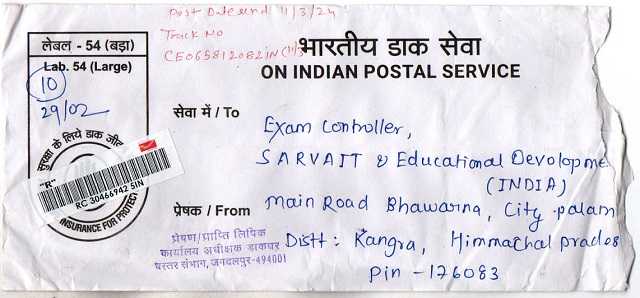 Post Date and 11/3/24
Track No
CE065812082IN (11/3
लेबल - 54 (बड़ा)
Lab. 54 (Large)
10
29/02
भारतीय डाक सेवा
ON INDIAN POSTAL SERVICE
सुरक्षा के लिये डाक जी
"R"
RC 30466942 5IN
INSURANCE FOR PROTECT
सेवा में / To
Exam Controller,
SARVAIT & Educational Devolopme
(INDIA)
प्रेषक / From
Main Road Bhawarna, City palam
Distt : Kangra, Himmachal prades
Pin - 176083
प्रेषण/प्राप्ति लिपिक
कार्यालय अधीक्षक डाकघर
बस्तर संभाग, जगदलपुर-494001